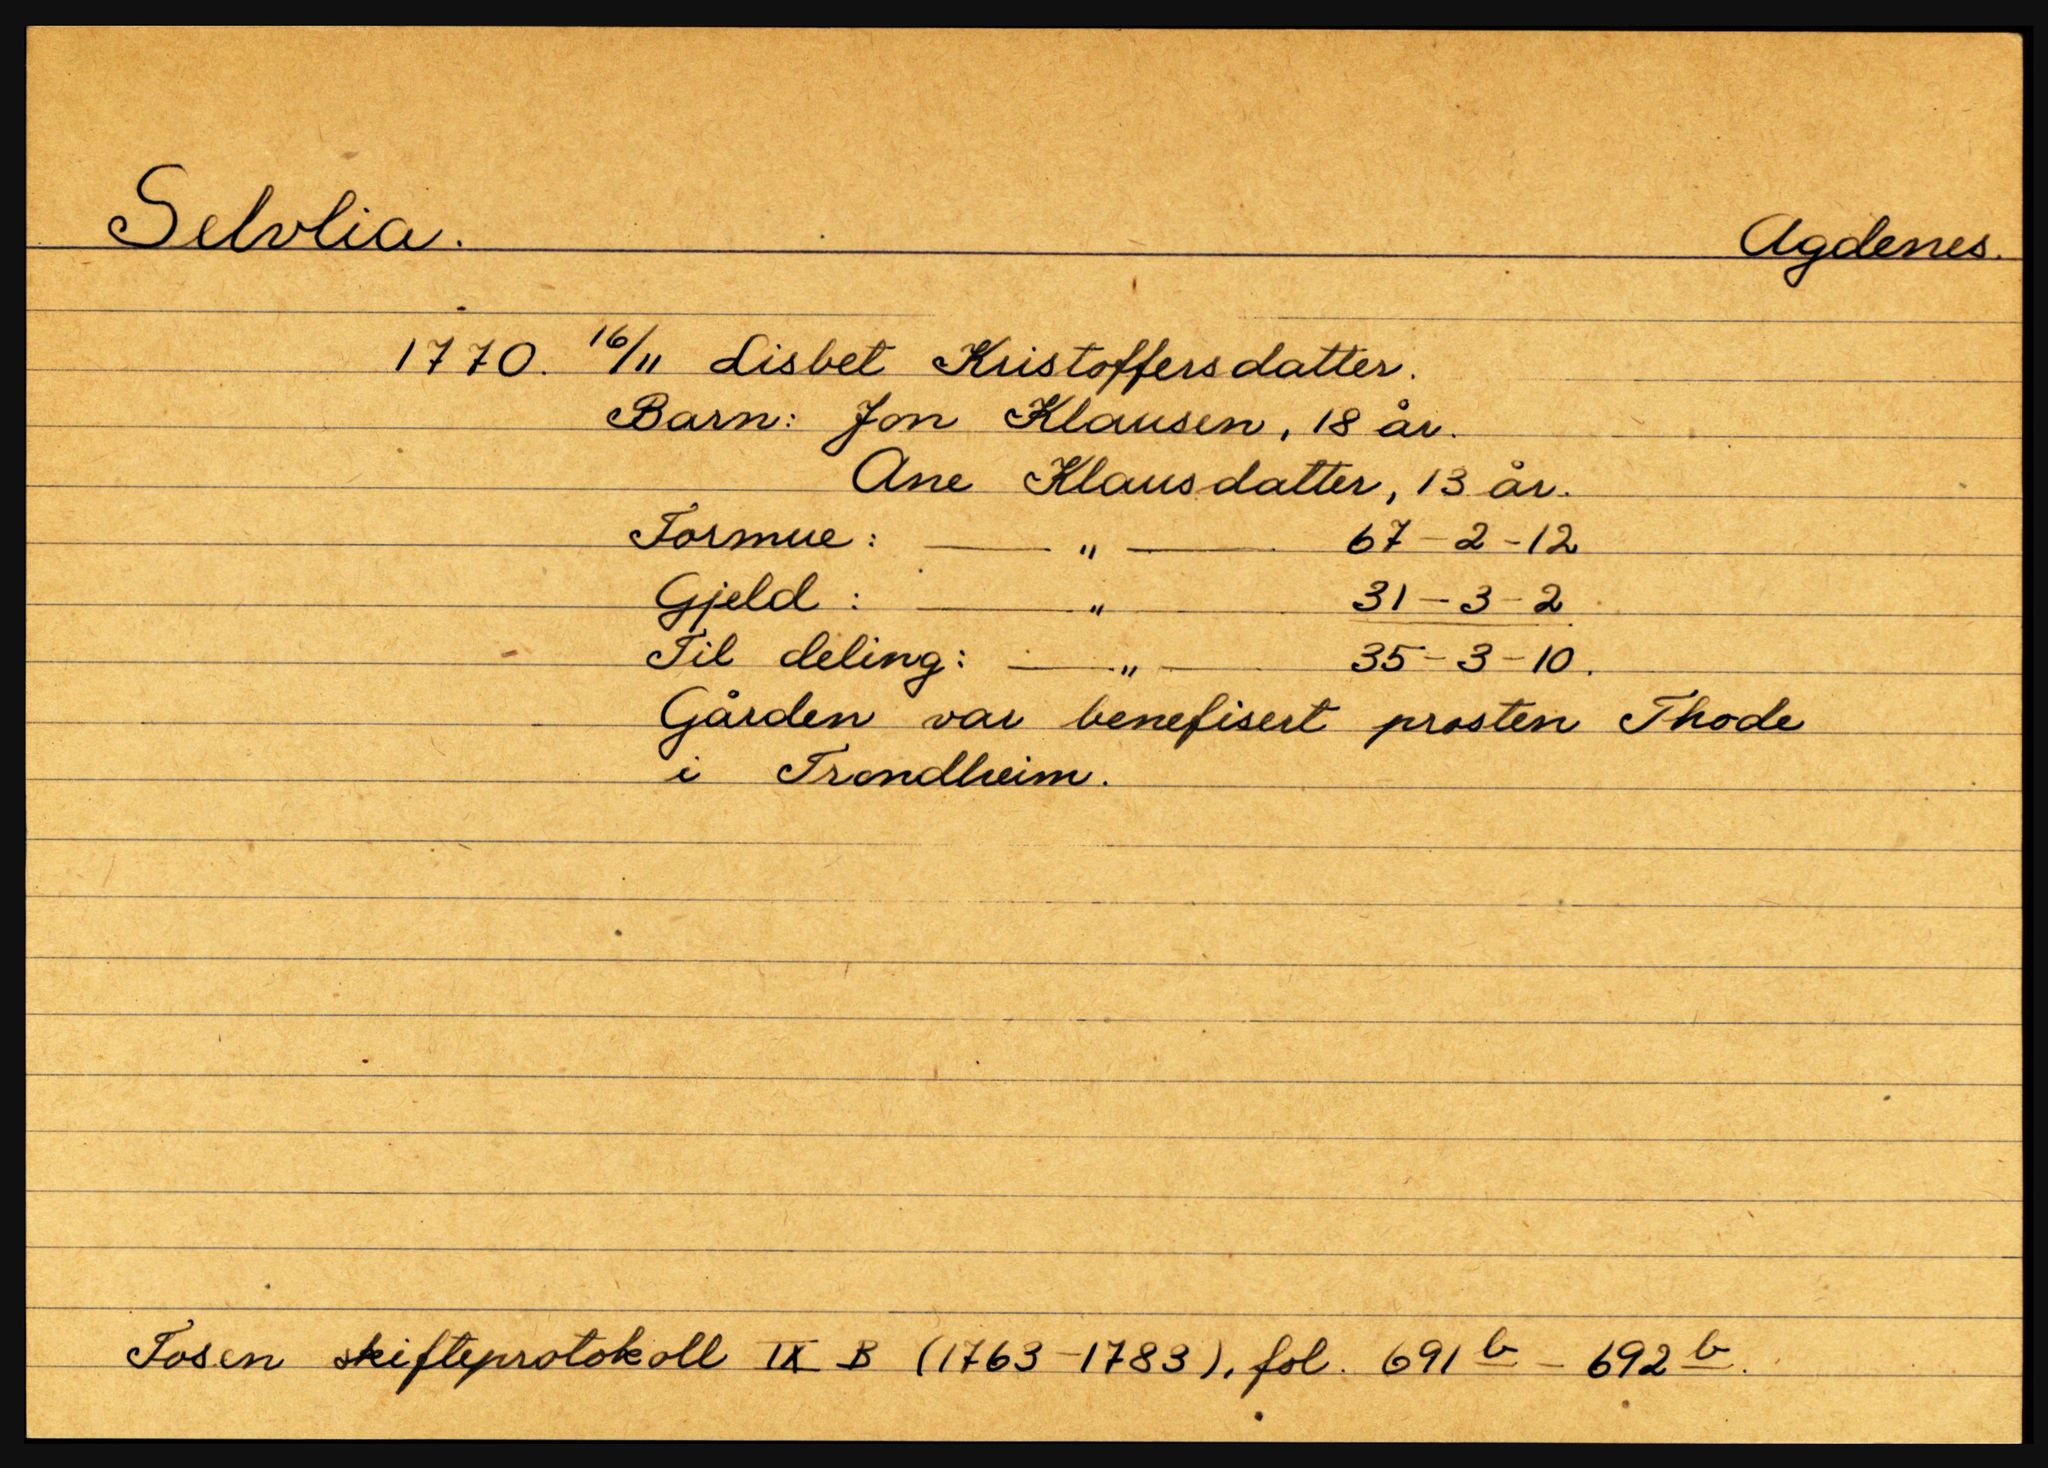 Selvlia. Agdenes.
1770. 16/11 Lisbet Kristoffersdatter.
Barn: Jon Klausen, 18 år.
Ane Klausdatter, 13 år.
Formue: — " — 67-2-12
Gjeld: — " — 31-3-2
Til deling: — " — 35-3-10.
Gården var benefisert prosten Thode
i Trondheim.
Fosen skifteprotokoll IX B (1763-1783), fol. 691 b - 692 b.